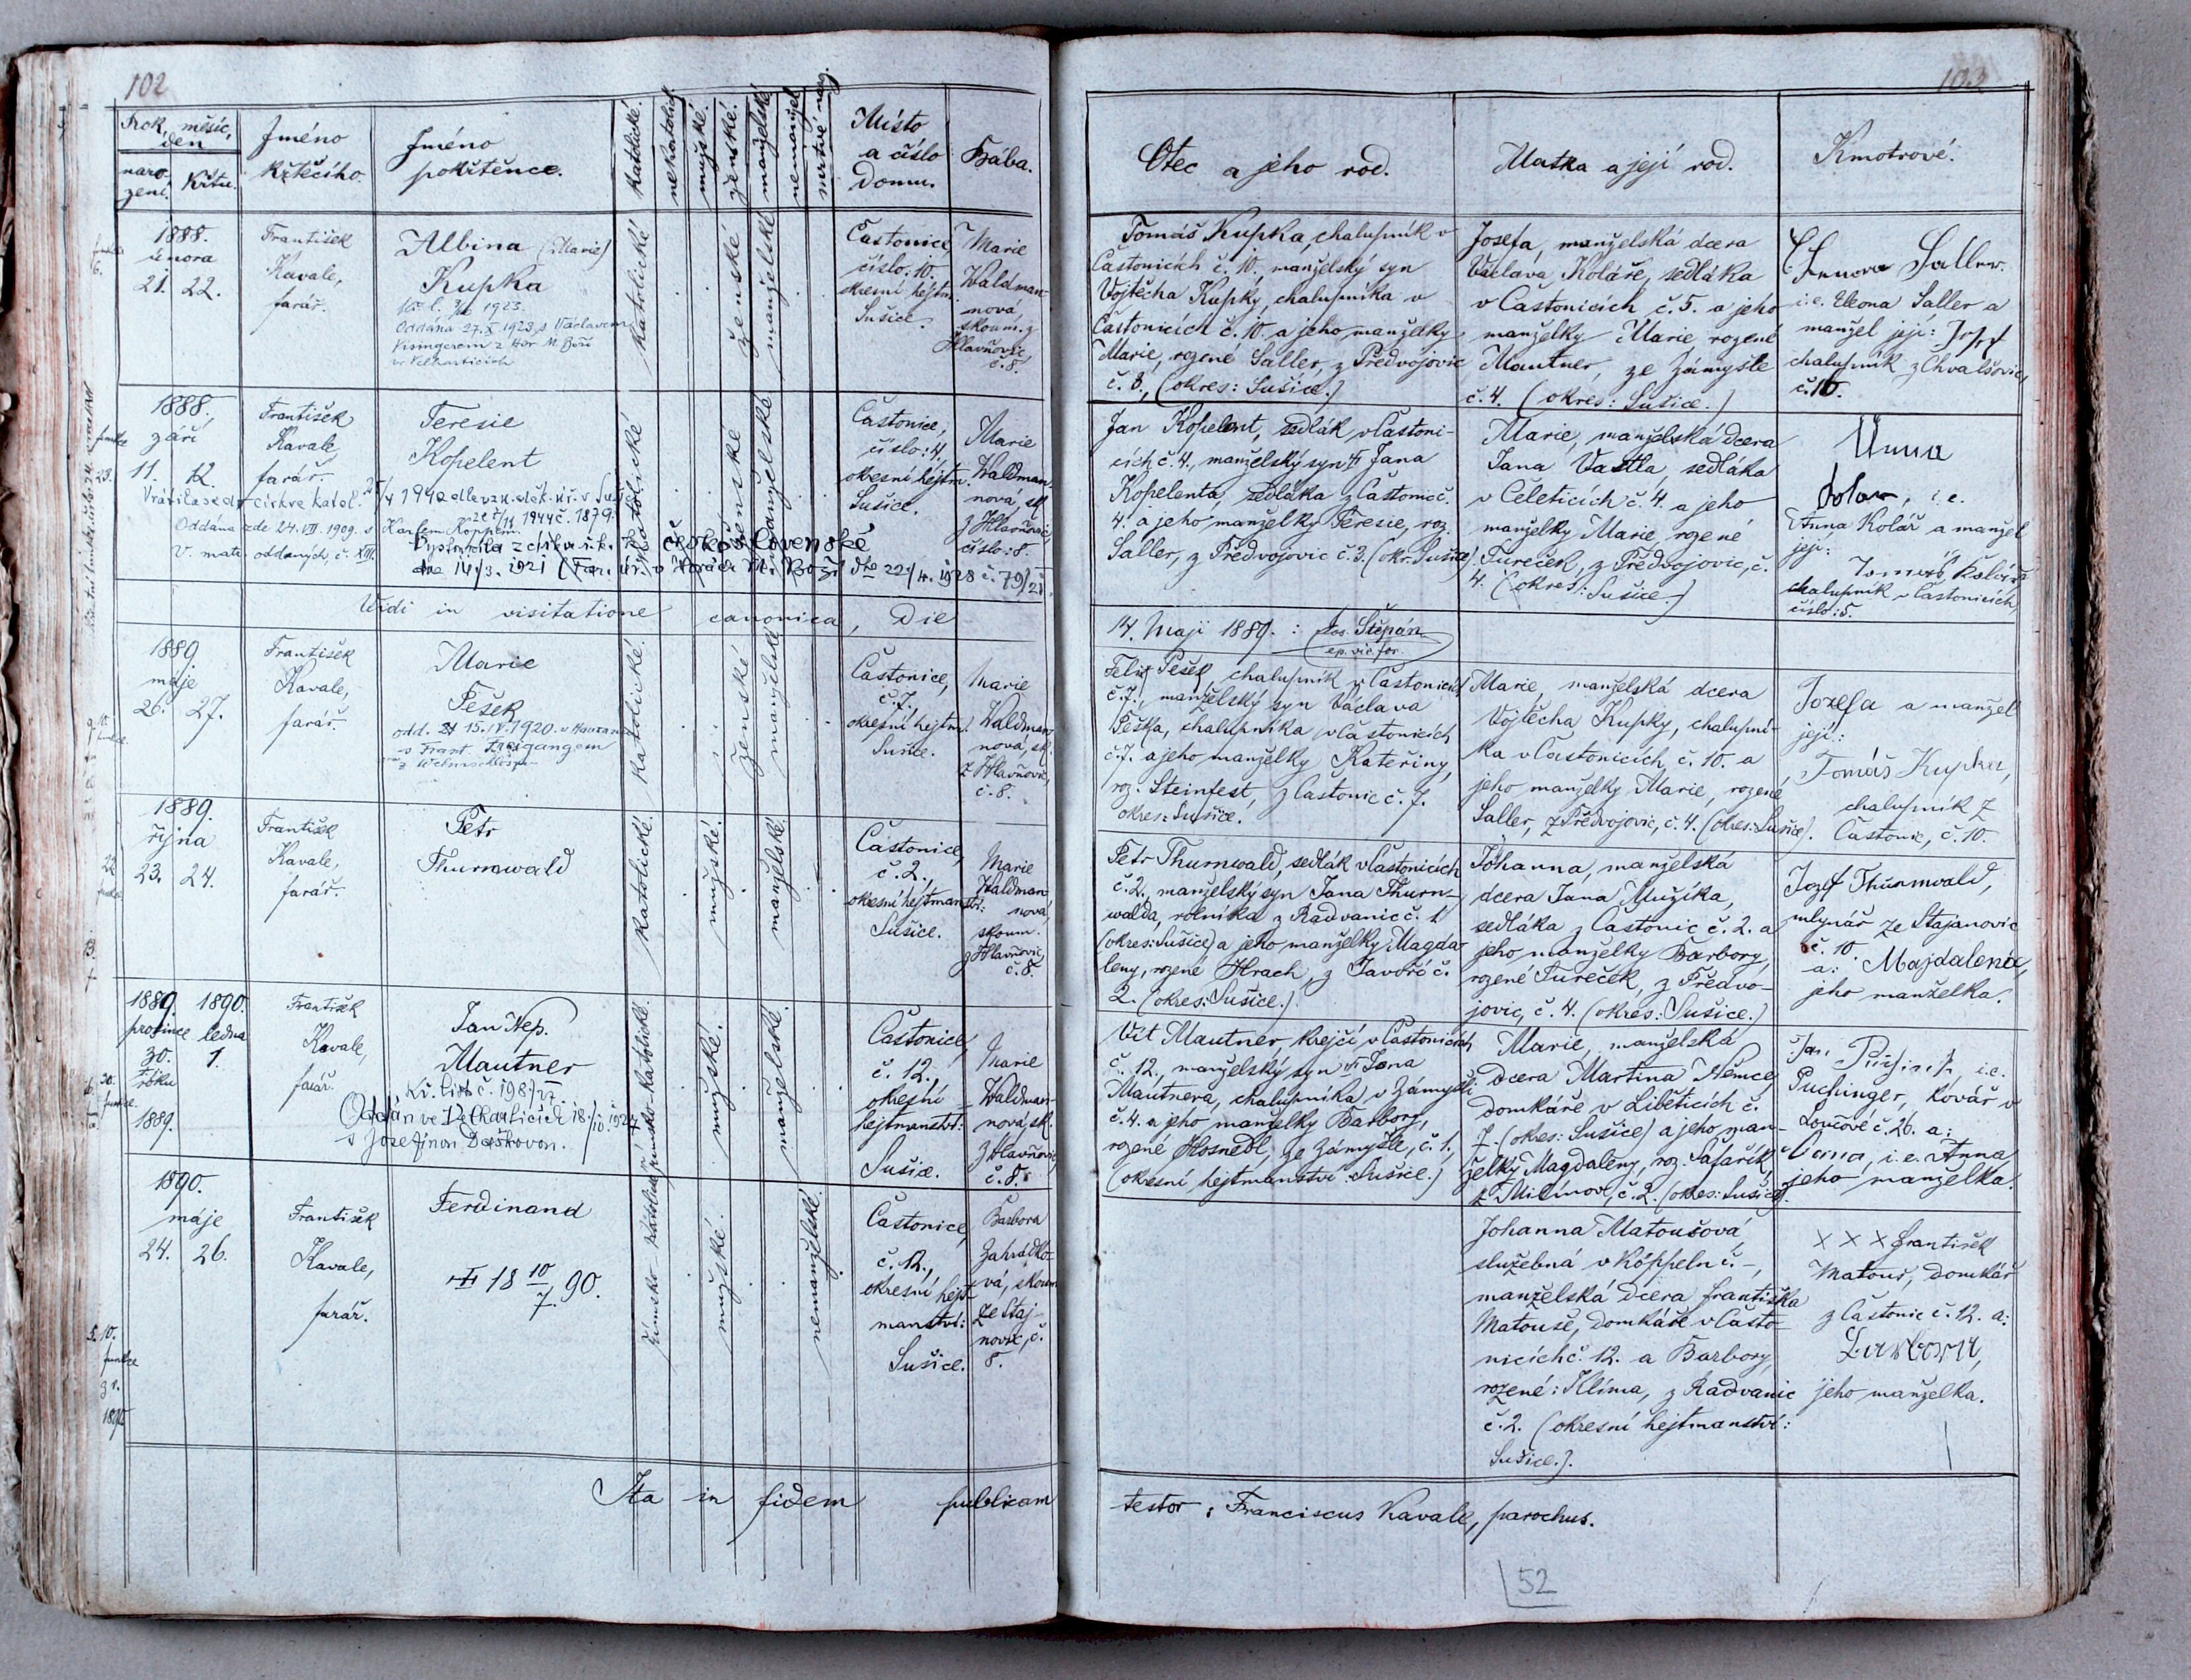 102
103
Rok, měsíc, den
narození. Křtu.
Jméno křtícího.
Jméno pokřtěnce.
katolické.
nekatolické.
mužské.
ženské.
manželské
nemanžel.
mrtvě nar.
Místo a číslo Domu.
Bába.
Otec a jeho rod.
Matka a její rod.
Kmotrové.
1888.
února
21. 22.
František
Kavale,
farář.
Albina (Marie)
Kupka
1923.
Oddána 27. X 1923 s Václavem
Kisingerem z Hor M. Boží
ve Velharticích
katolické
ženské
manželské
Častonice,
číslo. 10.
okresní hejtm.
Sušice.
Marie
Waldman
nová,
skoum. z
Hlavňovic,
č. 8.
Tomáš Kupka, chalupník v
Častonicích č. 10., manželský syn
Vojtěcha Kupky, chalupníka v
Častonicích č. 10. a jeho manželky
Marie, rozené Saller, z Předvojovic
č. 3., (okres: Sušice.)
Josefa, manželská dcera
Václava Koláře, sedláka
v Častonicích č. 5. a jeho
manželky Marie rozené
Mautner, ze Zámyšle
č. 4. (okres: Sušice.)
Saller.
i.e. Eleona Saller a
manžel její: Josef
chalupník z Chvalšovic,
č. 10.
1888.,
září
11. 12.
František
Kavale,
farář.
Teresie
Kopelent
Vrátila se do církve katol.
1944 č. 1879.
Oddána zde 24. VII. 1909. s Karlem
V. matr. oddaných, č. XIII.
Vystoupila z církve ř. k. k československé
dne 14./3. 1921
č. 79/21.
katolické
ženské
manželské
Častonice,
číslo: 4,
okresní hejtm.
Sušice.
Marie
Waldman
nová, sk.
z Hlavňovic,
číslo: 8.
Jan Kopelent, sedlák v Častoni-
cích č. 4., manželský syn Jana
Kopelenta, sedláka z Častonic č.
4. a jeho manželky Teresie, roz.
Saller, z Předvojovic č. 3. (okr. Sušice)
Marie, manželská dcera
Jana Vastla, sedláka
v Čeleticích č. 4. a jeho
manželky Marie, rozené
Tureček, z Předvojovic, č.
4. (okres: Sušice.)
Anna
Kolar, i.e.
Anna Kolář a manžel
její:
Tomáš Kolář
chalupník v Častonicích,
číslo: 5.
Vidi in visitatione canonica, Die
14. Maji 1889. : Jos. Štěpán
ep. vic. for.
1889
máje
26. 27.
František
Kavale,
farář.
Marie
Pešek
odd. 15. IV. 1920.
s Frant. Freigangem
katolické.
ženské
manželské
Častonice,
č. 7.,
okresní hejtm.
Sušice.
Marie
Waldman
nová, sk.
z Hlavňovic,
č. 8.
Felix Pešek, chalupník v Častonicích
č. 7., manželský syn Václava
Peška, chalupníka v Častonicích
č. 7. a jeho manželky Kateřiny,
roz. Steinfest, z Častonic č. 7.
okres: Sušice.
Marie, manželská dcera
Vojtěcha Kupky, chalupní-
ka v Častonicích, č. 10. a
jeho manželky Marie, rozené
Saller, z Předvojovic, č. 4. (okres: Sušice).
Jozefa a manžel
její:
Tomáš Kupka,
chalupník z
Častonic, č. 10.
1889.
října
23. 24.
František
Kavale,
farář.
Petr
Thurnwald
katolické.
mužské.
manželské.
Častonice,
č. 2.,
okresní hejtmanství:
Sušice.
Marie
Waldman
nová
skoum.
z Hlavňovic,
č. 8.
Petr Thurnwald, sedlák v Častonicích
č. 2., manželský syn Jana Thurn-
walda, rolníka z Radvanic č. 1.
(okres: Sušice) a jeho manželky Magda-
leny, rozené Hrach, z Javoří č.
2. (okres: Sušice.)
Johanna, manželská
dcera Jana Mužíka,
sedláka z Častonic č. 2. a
jeho manželky Barbory,
rozené Tureček, z Předvo-
jovic, č. 4. (okres: Sušice.)
Jozef Thurnwald,
mlynář ze Stajanovic
č. 10.
a: Majdalena,
jeho manželka.
1889. 1890.
prosince ledna
30. 1.
roku
1889.
František
Kavale,
farář.
Jan Nep.
Mautner
Kř. list č. 198/27.
Oddán ve Velharticích 18./10. 1927
s Josefinou Daškovou.
římsko-katolické.
mužské.
manželské.
Častonice,
č. 12.,
okresní
hejtmanství:
Sušice.
Marie
Waldman-
nová, sk.
z Hlavňovic,
č. 8.
Vít Mautner, krejčí v Častonicích
č. 12., manželský syn Jana
Mautnera, chalupníka v Zámyšli
č. 4. a jeho manželky Barbory,
rozené Hosnedl, ze Zámyšle, č. 1.,
(okresní hejtmanství Sušice.)
Marie, manželská
dcera Martina Němce,
domkáře v Liběticích č.
7. (okres: Sušice) a jeho man-
želky Magdaleny, roz. Šafařík,
z Milínova, č. 2. (okres: Sušice).
Jan i.e.
Puchinger, kovář v
Loučové č. 26. a:
Anna, i.e. Anna
jeho manželka.
1890.
máje
24. 26.
František
Kavale,
farář.
Ferdinand
18 10/7. 90.
římsko-katolické
mužské.
nemanželské.
Častonice,
č. 12.,
okresní hejt-
manství:
Sušice.
Barbora
Zahrádko-
vá, skoum.
ze Staj-
novic, č.
8.
Johanna Matoušová,
služebná v Köppeln č. -,
manželská dcera Františka
Matouše, domkáře v Často-
nicích č. 12. a Barbory,
rozené: Klíma, z Radvanic
č. 2. (okresní hejtmanství:
Sušice.).
X X X František
Matouš, domkář
z Častonic č. 12. a:
Barbora,
jeho manželka.
Ita in fidem publicam
testor : Franciscus Kavale, parochus.
52